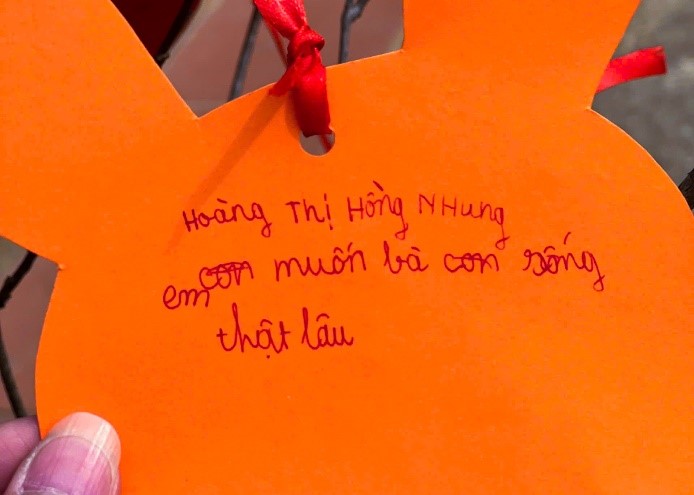 Hoàng Thị Hồng Nhung
em con muốn bà con sống
thật lâu